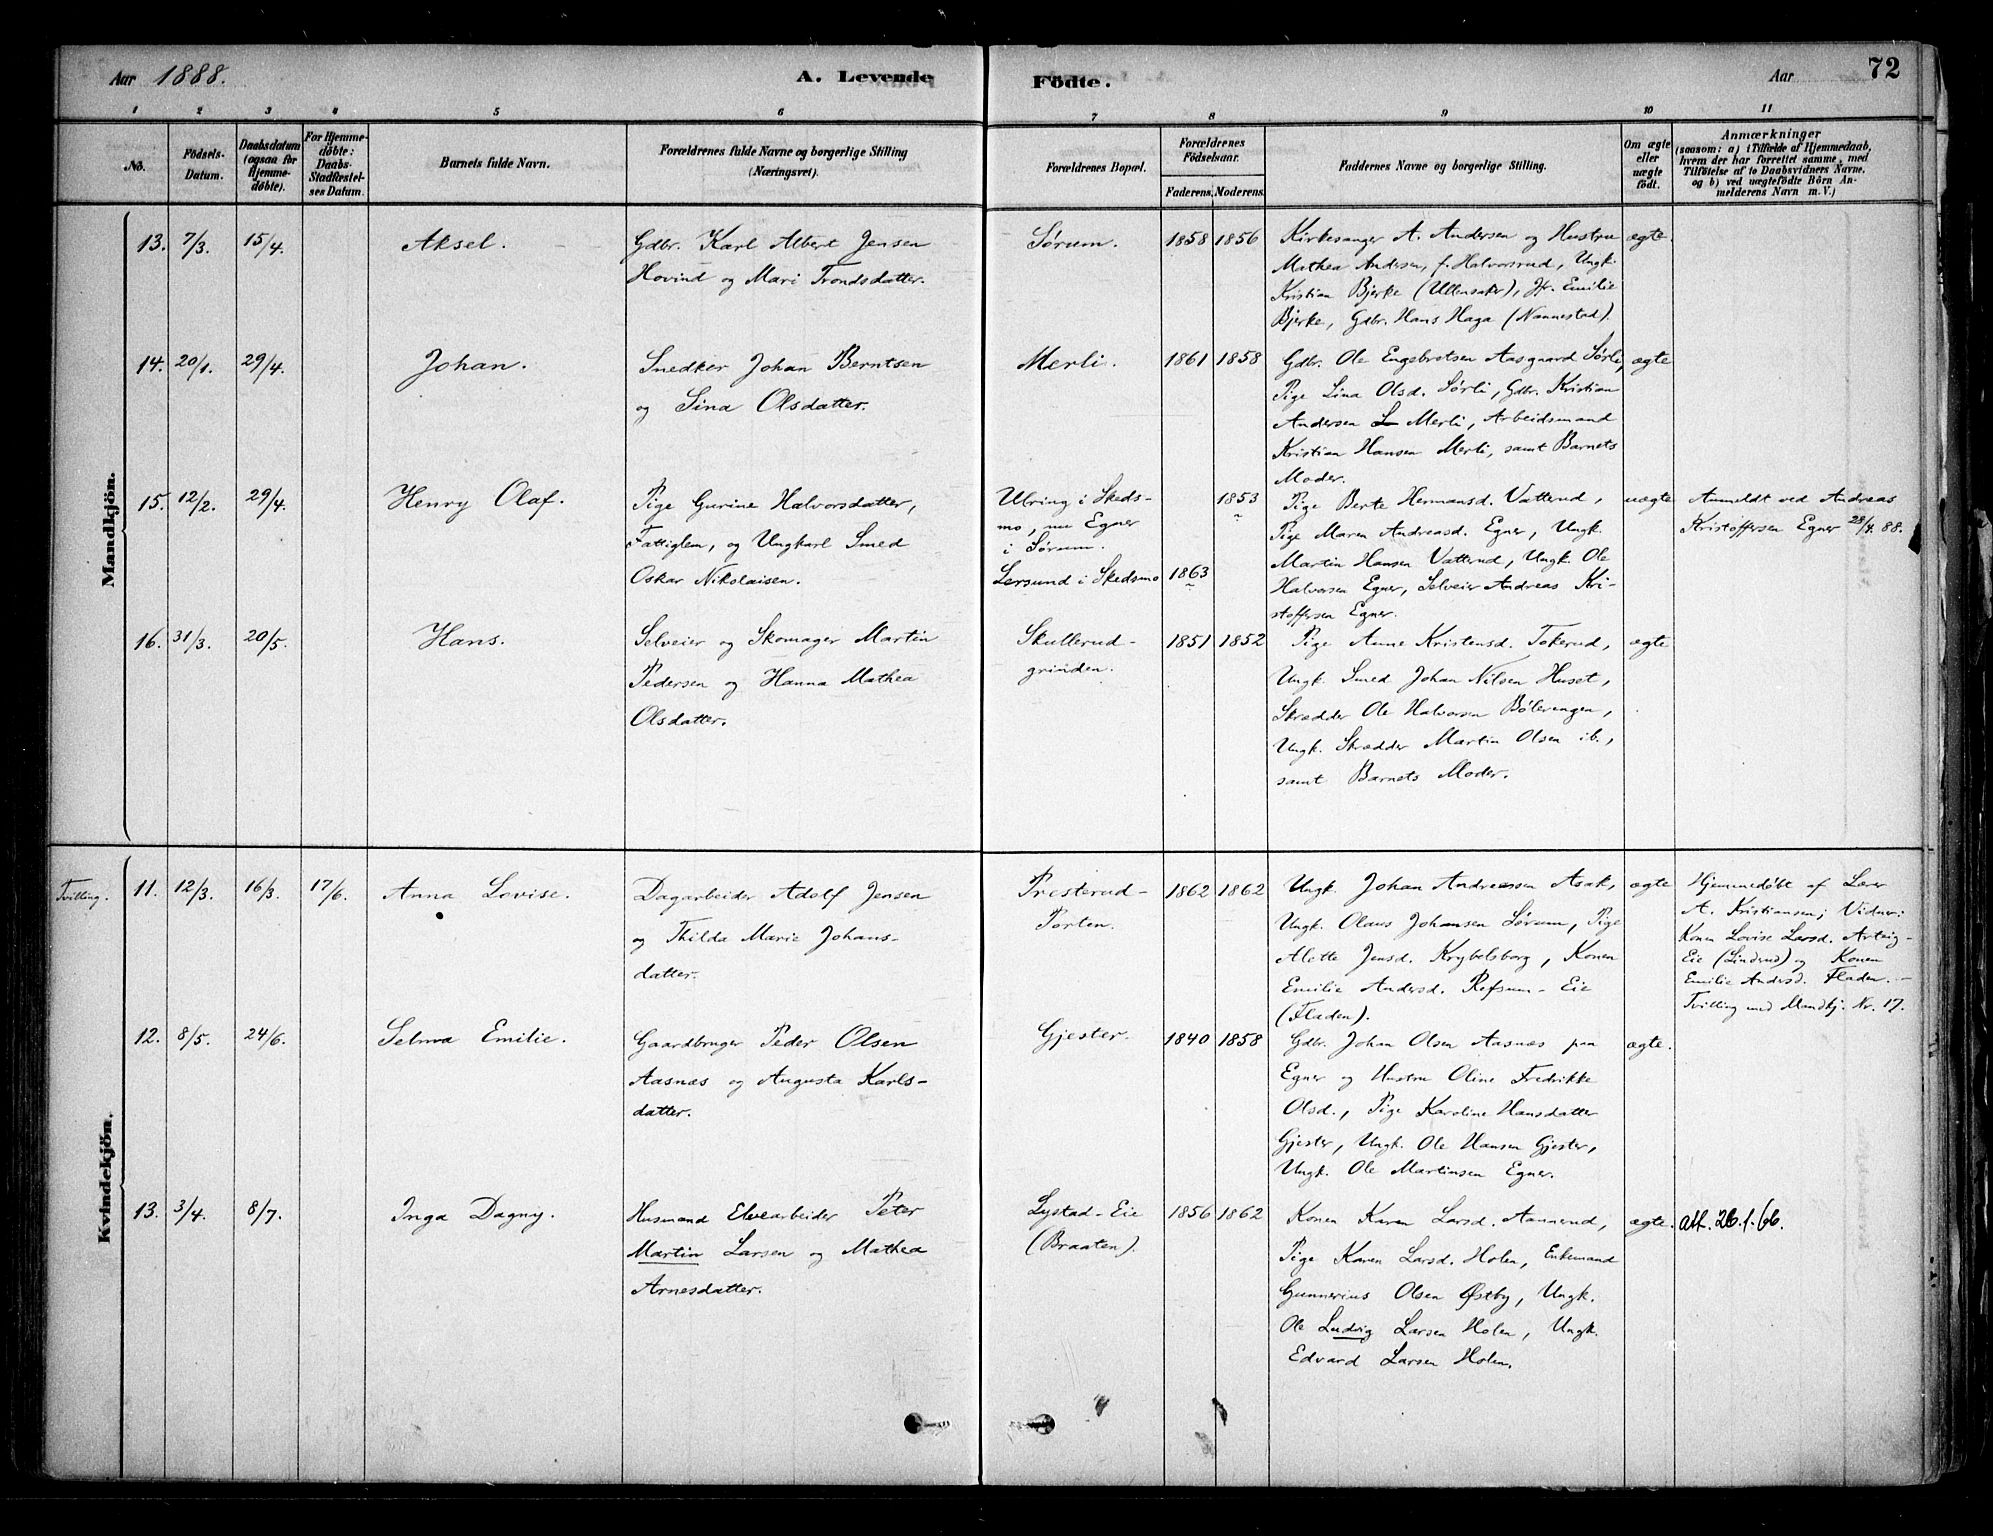 Aar 1888.
A. Levende
Födte.
Aar
72
1
2
3
4
5
6
7
8
9
10
11
No.
Födsels-
Datum.
Daabsdatum
(ogsaa for
Hjemme-
döbte).
For Hjemme-
döbte:
Daabs-
Stadfæstel-
ses Datum.
Barnets fulde Navn.
Forældrenes fulde Navne og borgerlige Stilling
(Næringsvei).
Forældrenes Bopæl.
Forældrenes
Födselsaar.
Faderens.
Moderens.
Faddernes Navne og borgerlige Stilling.
Om ægte
eller
uægte
födt.
Anmærkninger
(saasom: a) i Tilfælde af Hjemmedaab,
hvem der har forrettet samme, med
Tilföielse af to Daabsvidners Navne,
og b) ved uægtefödte Börn An-
melderens Navn m. V.)
Mandkjön.
13. 7/3. 15/4.
Aksel.
Gdbr. Karl Albert Jensen
Hovind og Mari Trondsdatter.
Sørum.
1858 1856
Kirkesanger A. Andersen og Hustru
Mathea Andersen, f. Halvorsrud, Ungk.
Kristian Bjerke (Ullensaker), Fr. Emilie
Bjerke, Gdbr. Hans Haga (Nannestad).
ægte.
14. 20/1. 29/4.
Johan.
Snedker Johan Berntsen
og Sina Olsdatter.
Merli.
1861 1858
Gdbr. Ole Engebretsen Aasgaard Sørli,
Pige Lina Olsd. Sørli, Gdbr. Kristian
Andersen Merli, Arbeidsmand
Kristian Hansen Merli, samt Barnets
Moder.
ægte
15. 12/2. 29/4.
Henry Olaf.
Pige Gurine Halvorsdatter,
Fattiglem, og Ungkarl Smed
Oskar Nikolaisen.
Ulring i Skeds-
mo, nu Egner
i Sørum.
Lersund i Skedsmo
1863
1853
Pige Berte Hermansd. Vatterud,
Pige Maren Andreasd. Egner, Ungk.
Martin Hansen Vatterud, Ungk. Ole
Halvorsen Egner, Selveier Andreas Kri-
stoffersen Egner.
uægte
Anmeldt ved Andreas
Kristoffersen Egner 28/4. 88.
16. 31/3. 20/5.
Hans.
Selveier og Skomager Martin
Pedersen og Hanna Mathea
Olsdatter.
Skullerud-
grinden.
1851 1852
Pige Anne Kristensd. Tokerud,
Ungk. Smed Johan Nilsen Huset,
Skrædder Ole Halvorsen Bølerengen,
Ungk. Skrædder Martin Olsen ib.,
samt Barnets Moder.
ægte
Kvindekjön.
Tvilling. 11. 12/3. 16/3. 17/6.
Anna Lovise.
Dagarbeider Adolf Jensen
og Thilda Marie Johans-
datter.
Presterud-
Porten.
1862 1862
Ungk. Johan Andreassen Asak,
Ungk. Olaus Johansen Sørum, Pige
Alette Jensd. Krybelsborg, Konen
Emilie Andersd. Refsum-Eie
(Fladen).
ægte
Hjemmedøbt af Lærer
A. Kristiansen; Vidner:
Konen Lovise Larsd. Arteig-
Eie (Linderud) og Konen
Emilie Andersd. Fladen. -
Tvilling med Mandkj. Nr. 17.
12. 8/5. 24/6.
Selma Emilie.
Gaardbruger Peder Olsen
Aasnæs og Augusta Karls-
datter.
Gjester.
1840 1858
Gdbr. Johan Olsen Aasnæs paa
Egner og Hustru Oline Fredrikke
Olsd., Pige Karoline Hansdatter
Gjester, Ungk. Ole Hansen Gjester,
Ungk. Ole Martinsen Egner.
ægte.
13. 3/4. 8/7.
Inga Dagny.
Husmand Elvearbeider Peter
Martin Larsen og Mathea
Arnesdatter.
Lystad-Eie
(Braaten).
1856 1862
Konen Karen Larsd. Aannerud,
Pige Karen Larsd. Holen, Enkemand
Gunnerius Olsen Østby, Ungk.
Ole Ludvig Larsen Holen, Ungk.
Edvard Larsen Holen.
ægte.
Att. 26.1.66.